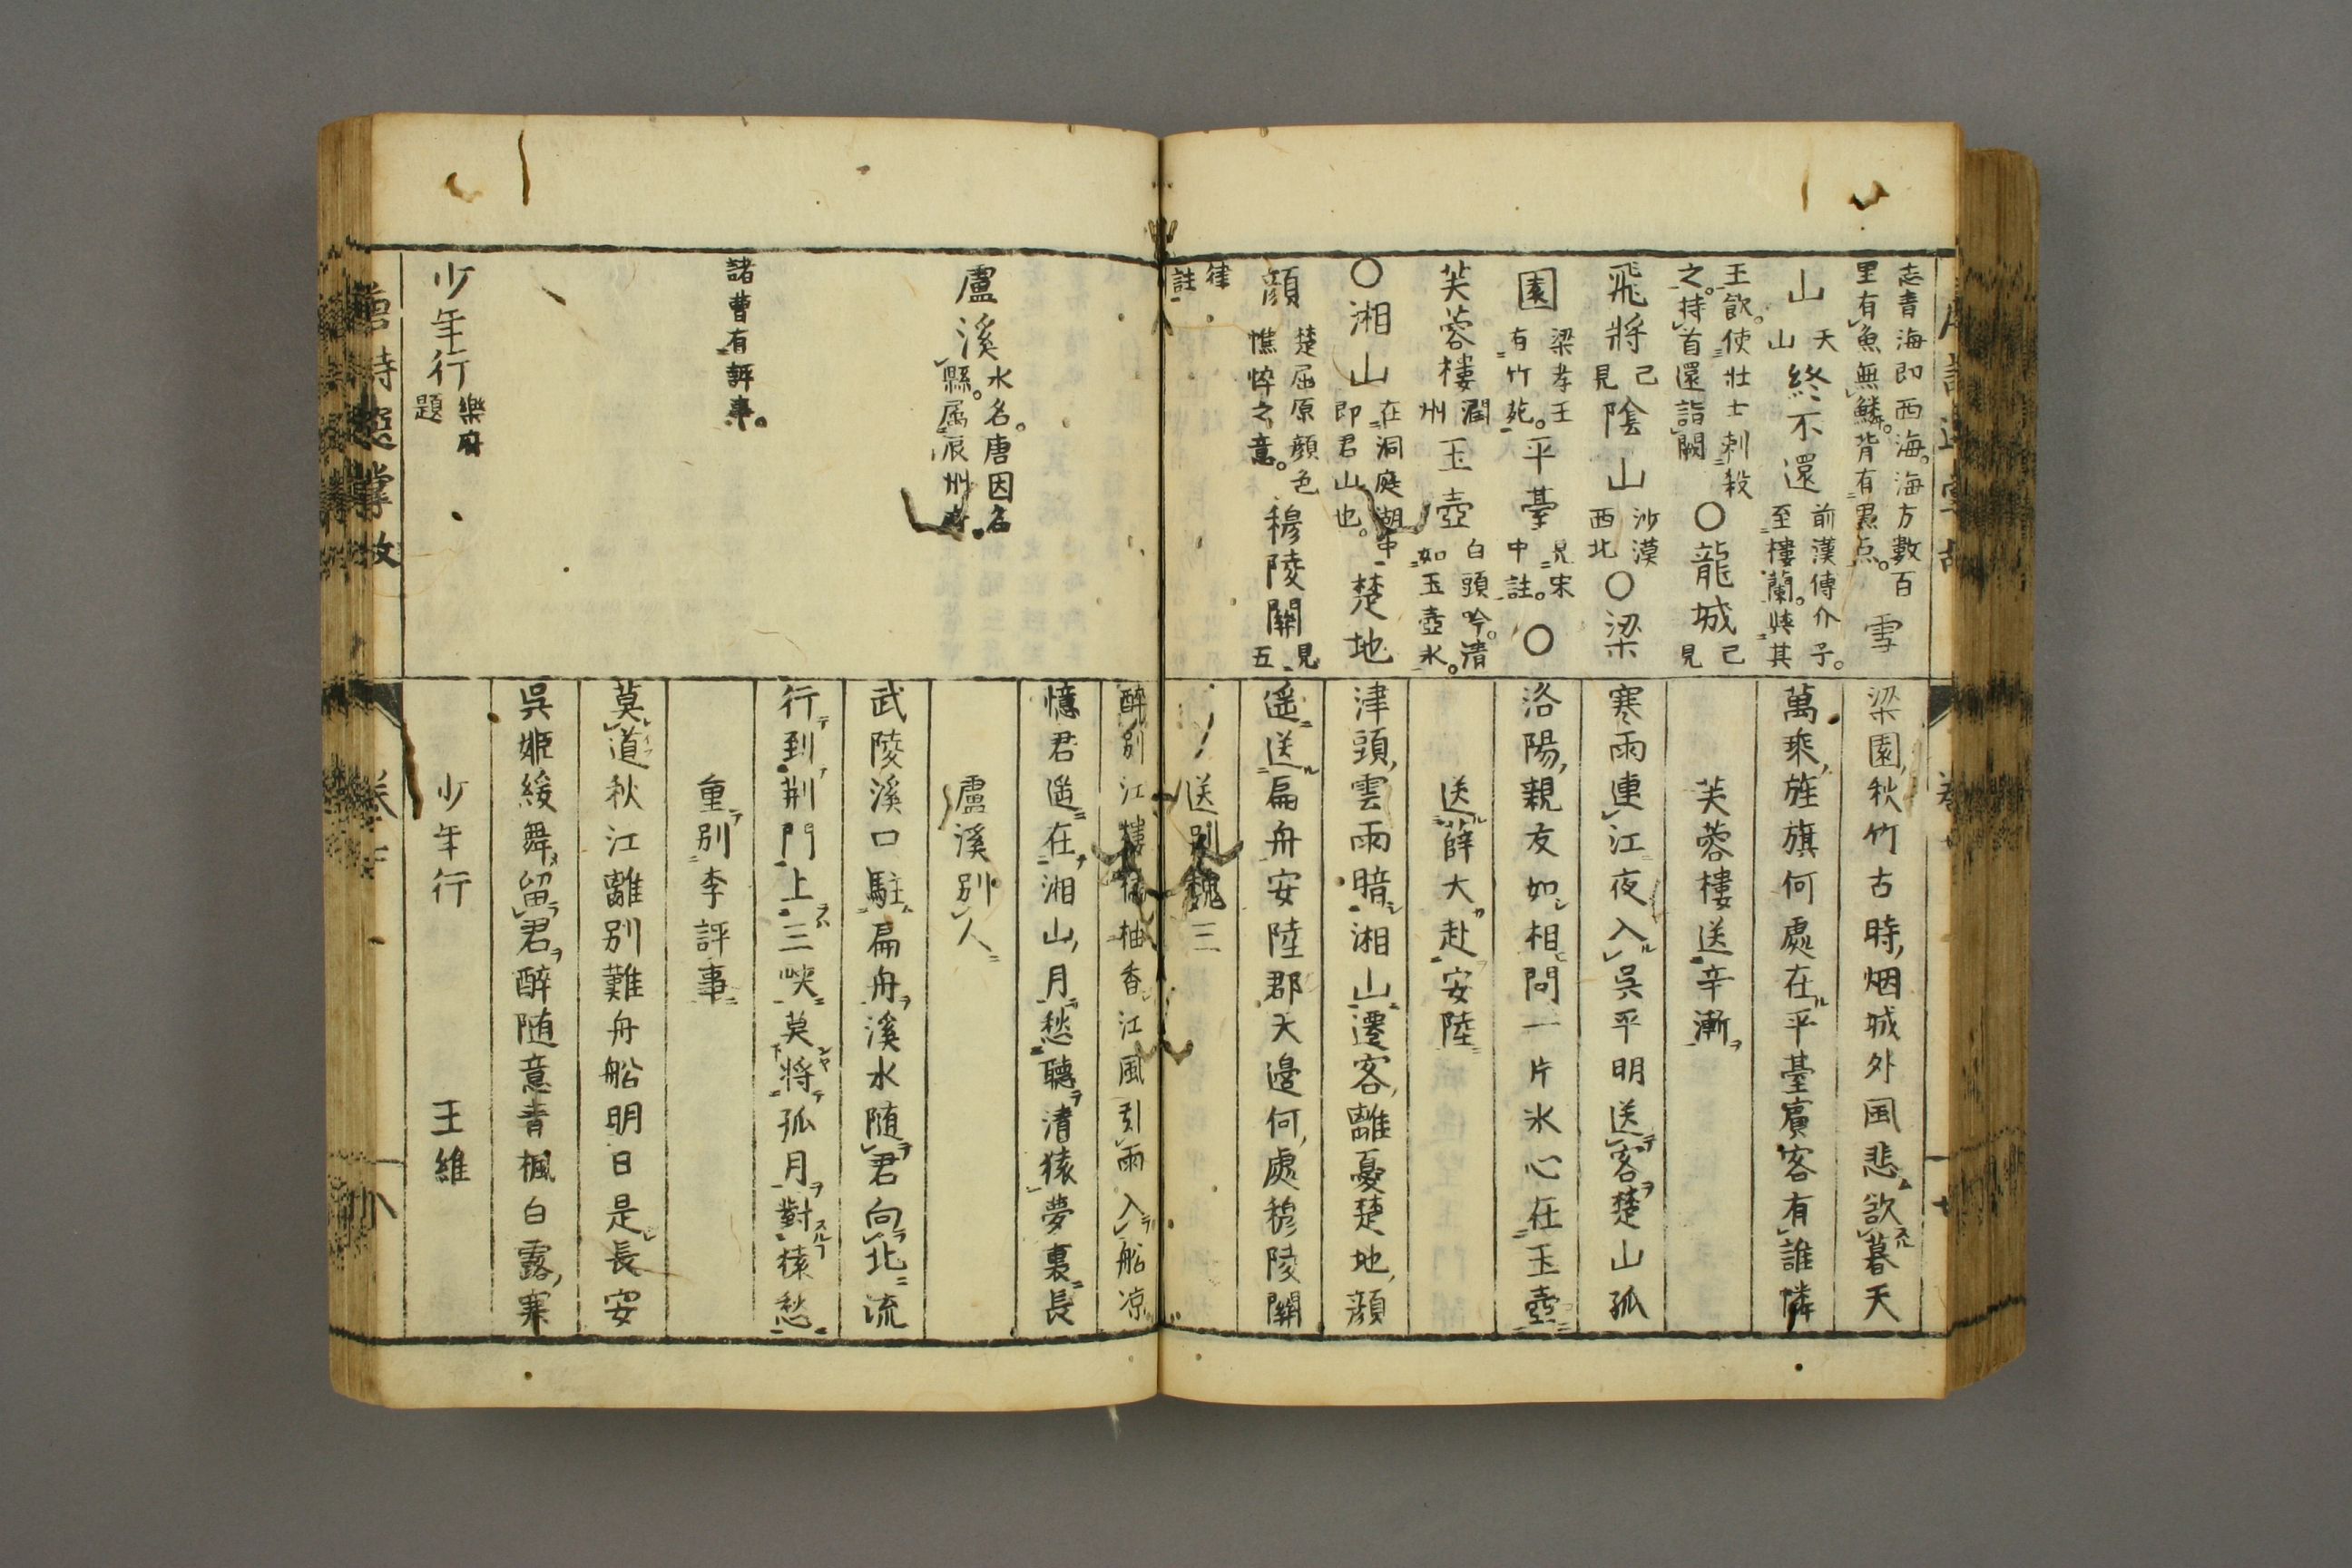 志青海即西海。海方數百
里有魚無鱗。背有黒点。
雪
山
天
山
終不還
前漢傳介子。
至樓蘭。
其
王飲。使壮士刺殺
之。持首還詣闕
○龍城
已
見
飛將
已
見
陰山
沙漠
西北
○梁
園
梁孝王
有竹苑。
平臺
見宋
中註。
○
芙蓉樓
潤
州
玉壺
白頭吟。清
如玉壺氷。
○湘山
在洞庭湖中
即君山也。
楚地
顔
楚屈原顔色
憔悴之意。
穆陵關
見
五
律
註
梁園秋竹古時烟城外風悲欲暮天
萬乘旌旗何處在平臺賓客有誰憐
芙蓉樓送辛漸
寒雨連江夜入吳平明送客楚山孤
洛陽親友如相問一片氷心在玉壺
送薛大赴安陸
津頭雲雨暗湘山遷客離憂楚地顔
遥送扁舟安陸郡天邉何處穆陵關
送別魏三
盧溪
水名。唐因名
縣。属辰州府。
諸曹有評事。
少年行
樂府
題
醉別江樓橘柚香江風引雨入船凉
憶君遥在湘山月愁聽清猿夢裏長
盧溪別人
武陵溪口駐扁舟溪水随君向北流
行到荆門上三峽莫將孤月對猿愁
重別李評事
莫道秋江離別難舟船明日是長安
吳姬緩舞留君醉随意青楓白露寒
少年行　王維